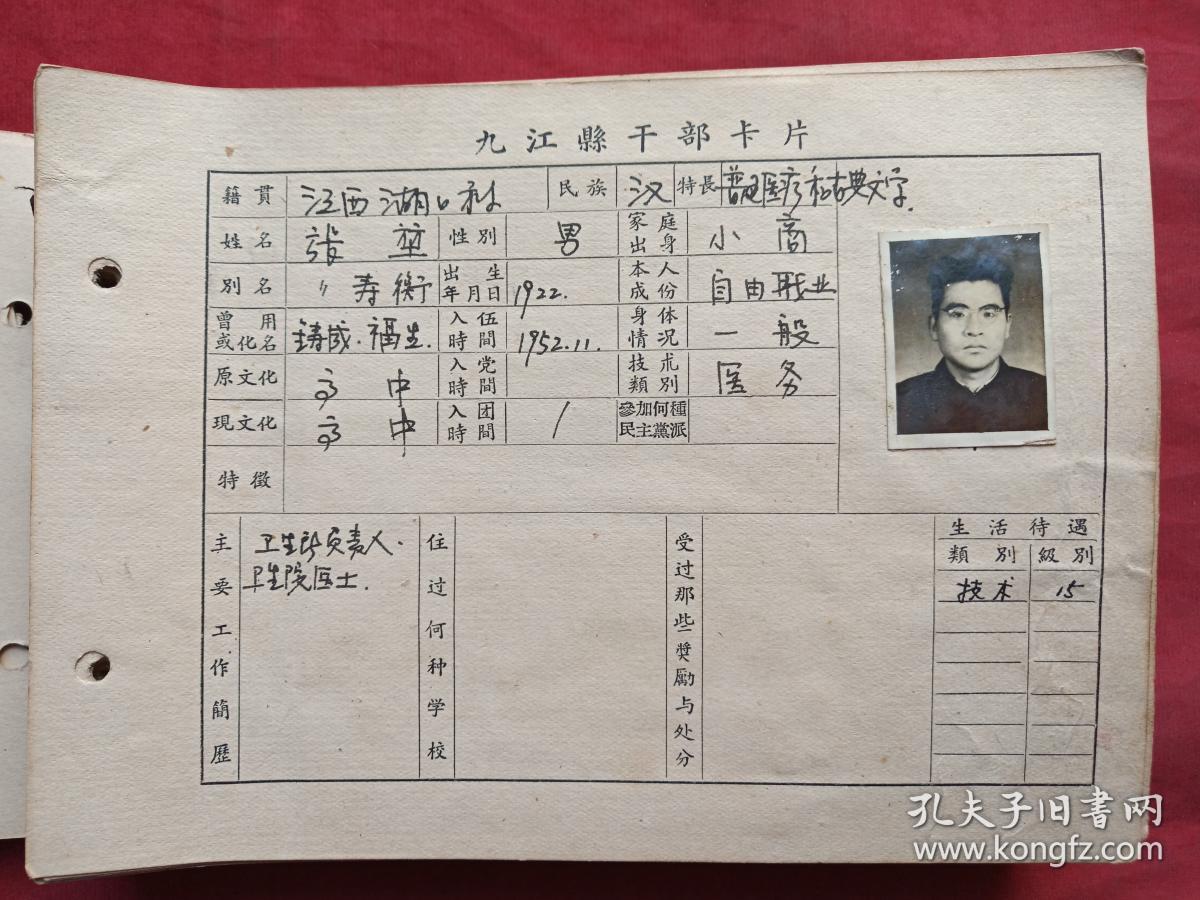 九江縣干部卡片
籍貫 江西湖口 民族 汉 特長 普通医疗和古典文学.
姓名 張 性別 男 家庭出身 小商
別名 〃寿衡 出生年月日 1922. 本人成份 自由职业
曾用或化名 鋳成.福生. 入伍時間 1952.11. 身体情况 一般
原文化 高中 入党時間 技朮類別 医务
現文化 高中 入团時間 / 參加何種民主黨派
特徵
主要工作簡歷 卫生所负责人. 住过何种学校 受过那些獎勵与处分 生活待遇
卫生院医士. 類別 級別
技术 15
孔夫子旧书网
www.kongfz.com